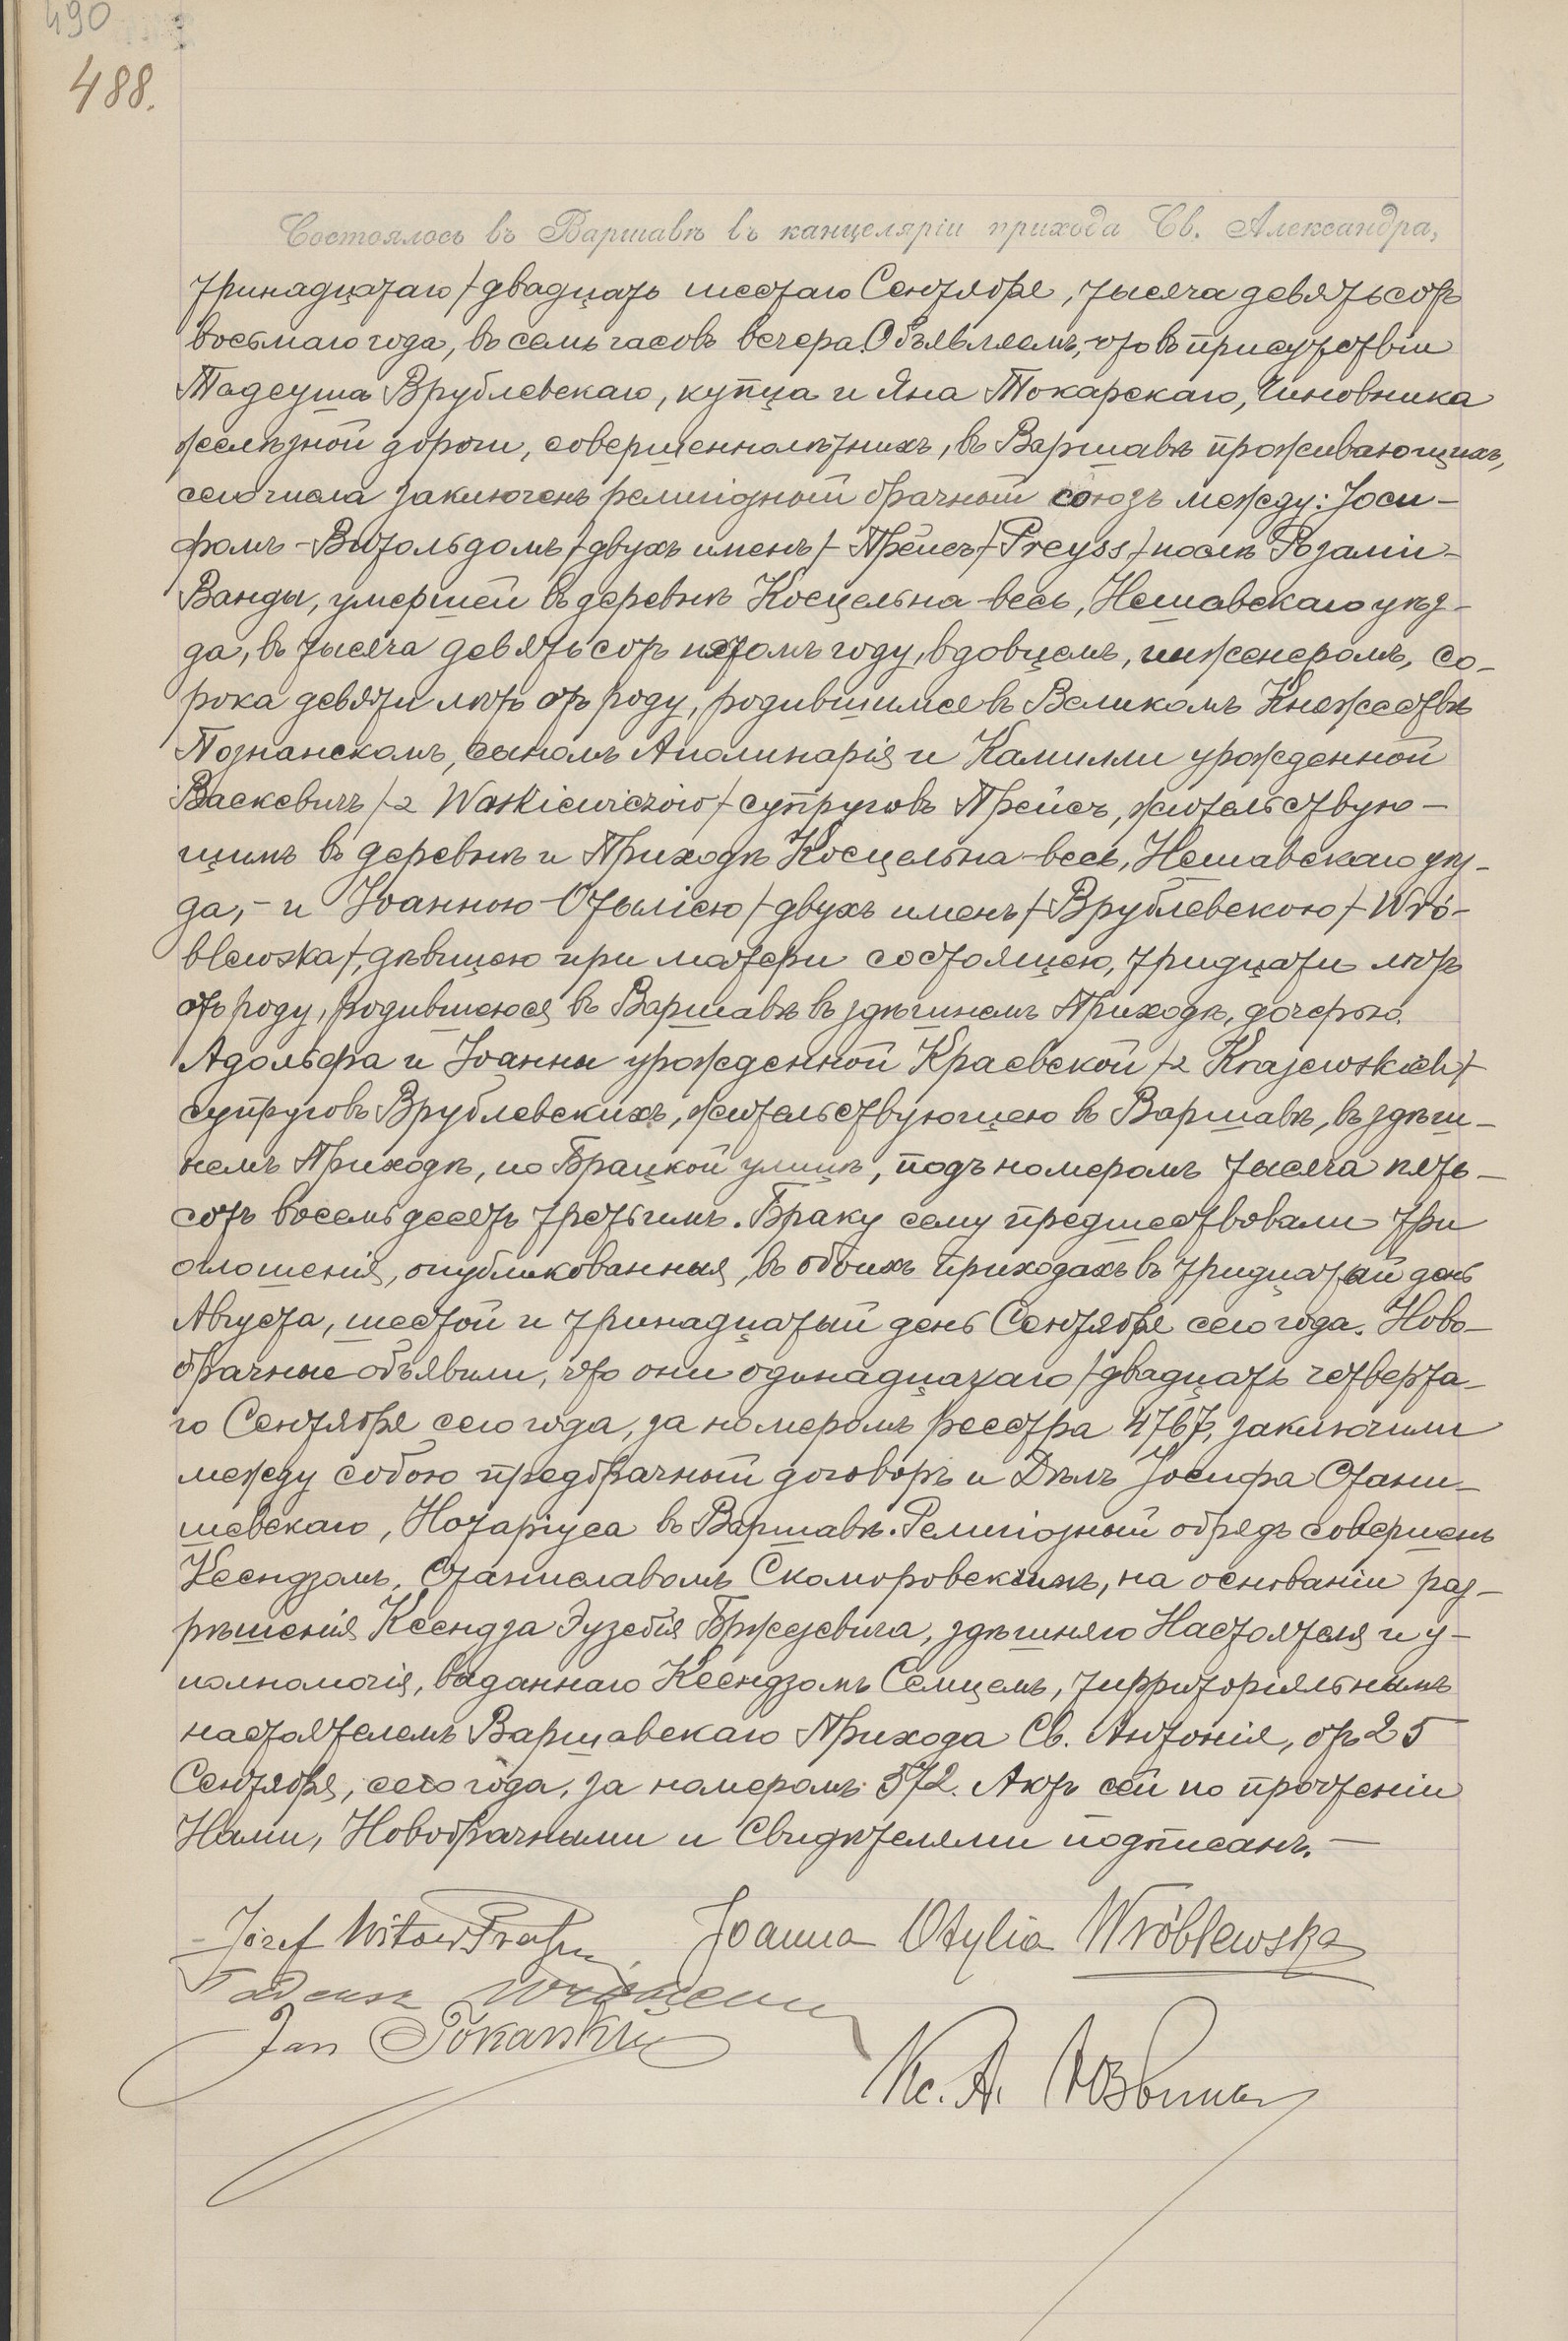 490
488.
Состоялось въ Варшавѣ въ канцеляріи прихода Св. Александра,
тринадцатаго / двадцать шестаго Сентября, тысяча девятьсотъ
восьмаго года, въ семь часовъ вечера. Объявляемъ, что въ присутствіи
Тадеуша Врублевскаго, купца и Яна Токарскаго, Чиновника
желѣзной дороги, совершеннолѣтнихъ, въ Варшавѣ проживающихъ,
сего числа заключенъ религіозный брачный союзъ между: Іоси-
фомъ-Витольдомъ /двухъ именъ/ Прейсъ /Preyss/ послѣ Розаліи-
Ванды, умершей въ деревнѣ Косцельна-весь, Нешавскаго уѣз-
да, въ тысяча девятьсотъ пятомъ году, вдовцемъ, инженеромъ, со-
рока девяти лѣтъ отъ роду, родившимся въ Великомъ Княжествѣ
Познанскомъ, сыномъ Аполинарія и Камиллы урожденной
Васкевичъ /z Waśkiewiczów/ супруговъ Прейсъ, жительствую-
щимъ въ деревнѣ и Приходѣ Косцельна-весь, Нешавскаго уѣз-
да, - и Іоанною-Отыліею /двухъ именъ/ Врублевскою /Wró-
blewska/, дѣвицею при матери состоящею, тридцати лѣтъ
отъ роду, родившеюся въ Варшавѣ въ здѣшнемъ Приходѣ, дочерью
Адольфа и Іоанны урожденной Краевской /z Krajewskich/
супруговъ Врублевскихъ, жительствующею въ Варшавѣ, въ здѣш-
немъ Приходѣ, по Брацкой улицѣ, подъ номеромъ тысяча пять-
сотъ восемьдесятъ третьимъ. Браку сему предшествовали три
оглашенія, опубликованныя, въ обоихъ приходахъ въ тридцатый день
Августа, шестой и тринадцатый день Сентября сего года. Ново-
брачные объявили, что они одинадцатаго / двадцать четверта-
го Сентября сего года, за номеромъ реестра 4767, заключили
между собою предбрачный договоръ и Дѣлъ Іосифа Стани-
шевскаго, Нотаріуса въ Варшавѣ. Религіозный обрядъ совершенъ
Ксендзомъ, Станиславомъ Скоморовскимъ, на основаніи раз-
рѣшенія Ксендза Эузебія Бржезевича, здѣшняго Настоятеля и у-
полномочія, выданнаго Ксендзомъ Семцемъ, территоріяльнымъ
настоятелемъ Варшавскаго Прихода Св. Антонія, отъ 25
Сентября, сего года, за номеромъ 572. Актъ сей по прочтеніи
Нами, Новобрачными и Свидѣтелями подписанъ. —
Józef Witold
Joanna Otylia Wróblewska
Tadeusz
Jan Tokarski
Кс. А.